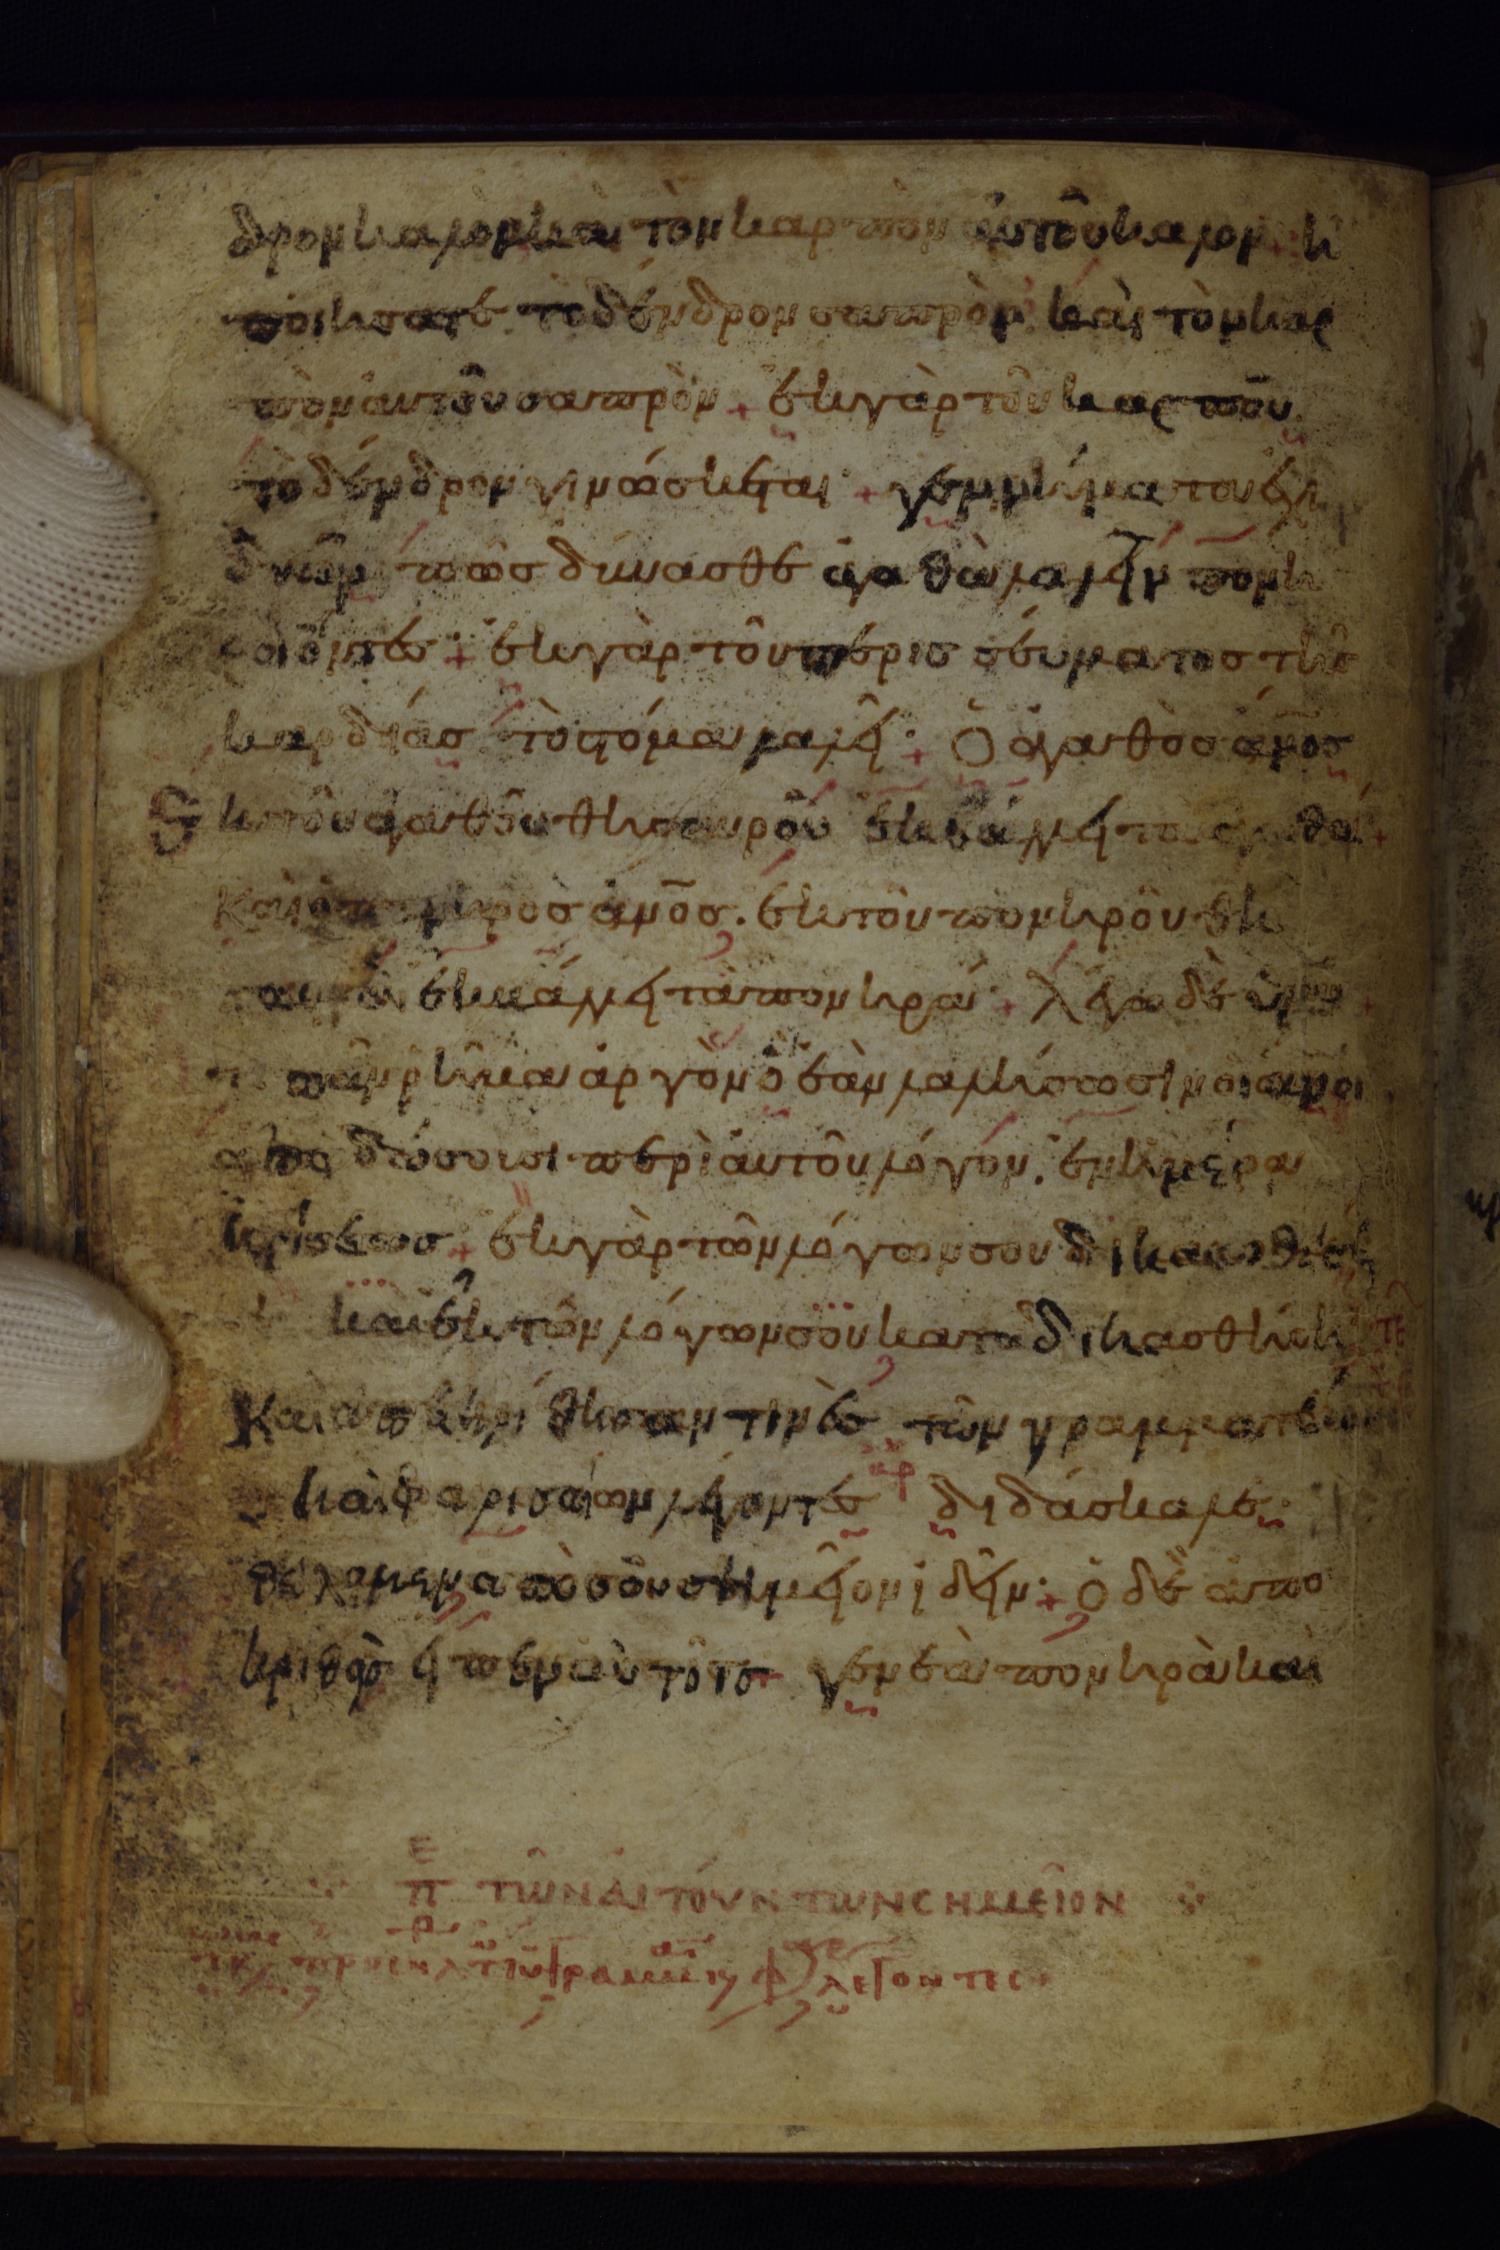 δρον καλὸν καὶ τὸν καρπὸν αὐτοῦ καλὸν· ἢ
ποιήσατε τὸ δένδρον σαπρὸν καὶ τὸν καρ
πὸν αὐτοῦ σαπρὸν + ἐκ γὰρ τοῦ καρποῦ
τὸ δένδρον γινώσκεται· + γεννήματα ἐχι
δνῶν πῶς δύνασθε ἀγαθὰ λαλεῖν πονη
ροὶ ὄντες + ἐκ γὰρ τοῦ περισσεύματος τῆς
καρδίας τὸ στόμα λαλεῖ· + Ὁ ἀγαθὸς ἄνος
ἐκ τοῦ ἀγαθοῦ θησαυροῦ ἐκβάλλει τὰ ἀγαθά +
Καὶ ὁ πονηρὸς ἄνος. ἐκ τοῦ πονηροῦ θη
σαυροῦ ἐκβάλλει τὰ πονηρά· + λέγω δὲ ὑμῖν +
ὅτι πᾶν ῥῆμα ἀργὸν ὃ ἐὰν λαλήσωσιν οἱ ἄνοι
ἀποδώσουσι περὶ αὐτοῦ λόγον. ἐν ἡμέρα
κρίσεως + ἐκ γὰρ τῶν λόγων σου δικαιωθήση
καὶ ἐκ τῶν λόγων σου καταδικασθήση
Καὶ ἀπεκρίθησαν τινὲς τῶν γραμματέων
καὶ φαρισαίων λέγοντες διδάσκαλε·
θέλομεν ἀπὸ σοῦ σημεῖον ἰδεῖν· + ὁ δὲ ἀπο
κριθεὶς εἶπεν αὐτοῖς + γενεὰ πονηρὰ καὶ
Π ΤῶΝ ΑἸΤΟΎΝΤΩΝ ϹΗΜΕῖΟΝ
ΛΕΓΟΝΤΕϹ